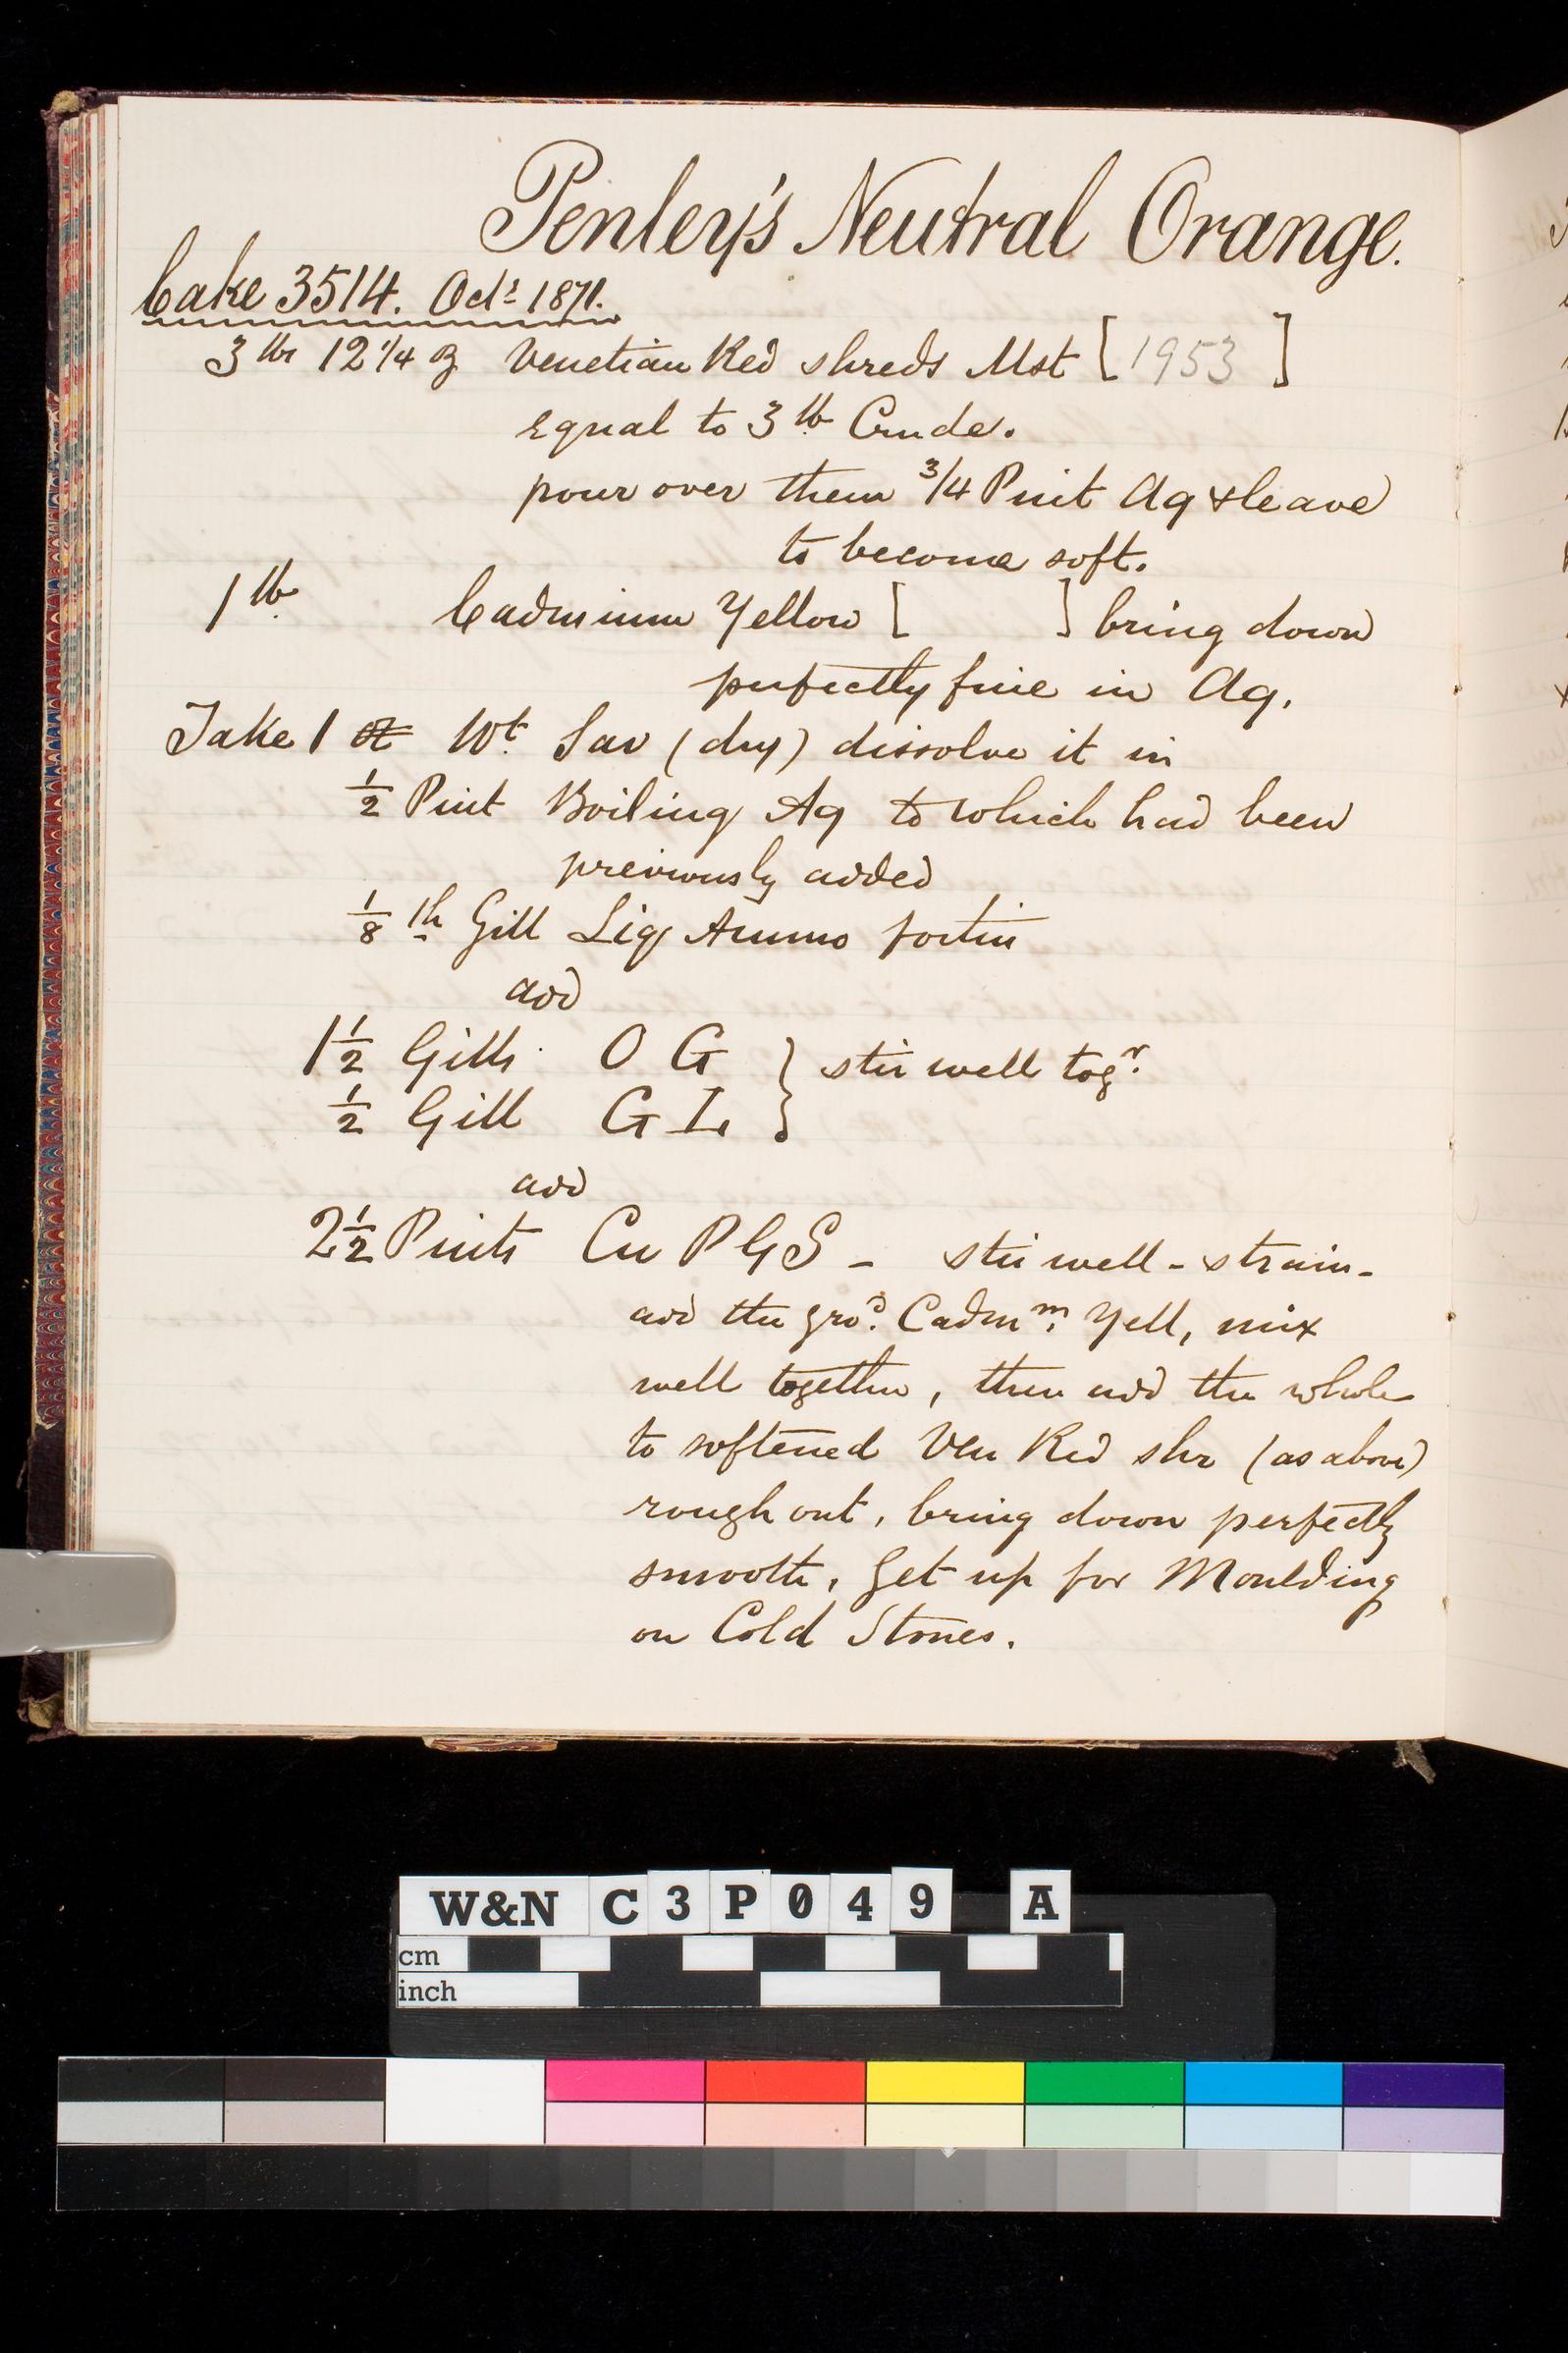 Penley's Neutral Orange.
Cake 3514. Octr 1871.
3 lbs 12 1/4 oz Venetian Red shreds Mst [1953]
equal to 3 lb Crude.
pour over them 3/4 Pint Aq & leave
to become soft.
1 lb Cadmium Yellow [ ] bring down
perfectly fine in Aq.
Take 1 oz Wt. Sav (dry) dissolve it in
1/2 Pint Boiling Aq to which had been
previously added
1/8 th Gill Liq Ammo fortis
add
1 1/2 Gills O G } stir well togr.
1/2 Gill G L
add
2 1/2 Pints Cu P G S - stir well - strain -
add the grod. Cadmm. Yell, mix
well together, then add the whole
to softened Ven Red shr (as above)
rough out, bring down perfectly
smooth, Get up for Moulding
on Cold Stones.
W&N C3P049 A
cm
inch